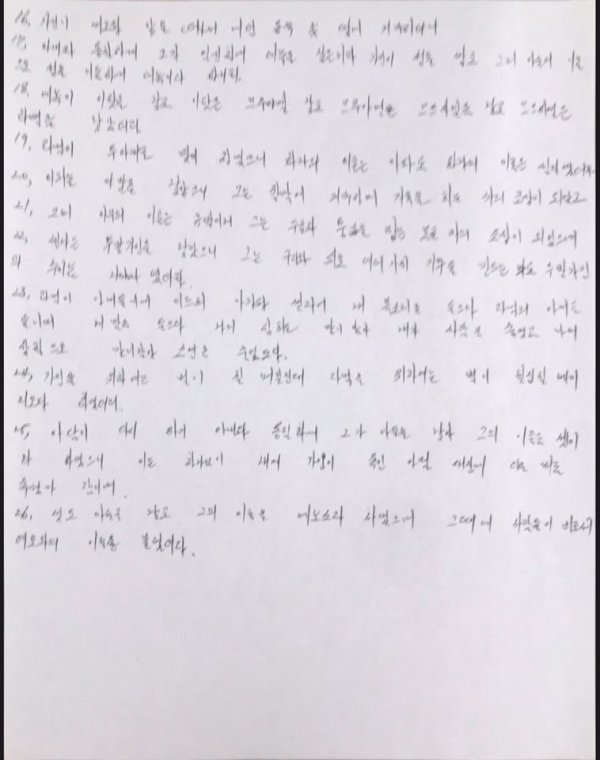 16, 가인이 여호와 앞을 떠나서 에덴 동쪽 놋 땅에 거주하더니
17, 아내와 동침하매 그가 임신하여 에녹을 낳은지라 가인이 성을 쌓고 그의 아들의 이름
으로 성을 이름하여 에녹이라 하니라.
18, 에녹이 이랏을 낳고 이랏은 므후야엘을 낳고 므후야엘은 므드사엘을 낳고 므드사엘은
라멕을 낳았더라
19, 라멕이 두 아내를 맞이 하였으니 하나의 이름은 아다요 하나의 이름은 씰라였더라
20, 아다는 야발을 낳았으니 그는 장막에 거주하며 가축을 치는 자의 조상이 되었고
21, 그의 아우의 이름은 유발이니 그는 수금과 퉁소를 잡는 모든 자의 조상이 되었으며
22, 씰라는 두발가인을 낳았으니 그는 구리와 쇠로 여러 가지 기구를 만드는 자요 두발가인
의 누이는 나아마 였더라.
23, 라멕이 아내들에게 이르되 아다와 씰라여 내 목소리를 들으라 라멕의 아내들
이여 내 말을 들으라 나의 상처로 말미암아 내가 사람을 죽였고 나의
상함으로 말미암아 소년을 죽였도다.
24, 가인을 위하여는 벌이 칠 배일진대 라멕을 위하여는 벌이 칠십칠 배이
리로다 하였더라.
25, 아담이 다시 자기 아내와 동침하매 그가 아들을 낳아 그의 이름을 셋이
라 하였으니 이는 하나님이 내게 가인이 죽인 아벨 대신에 다른 씨를
주셨다 함이며
26, 셋도 아들을 낳고 그의 이름을 에노스라 하였으며 그때에 사람들이 비로소
여호와의 이름을 불렀더라.